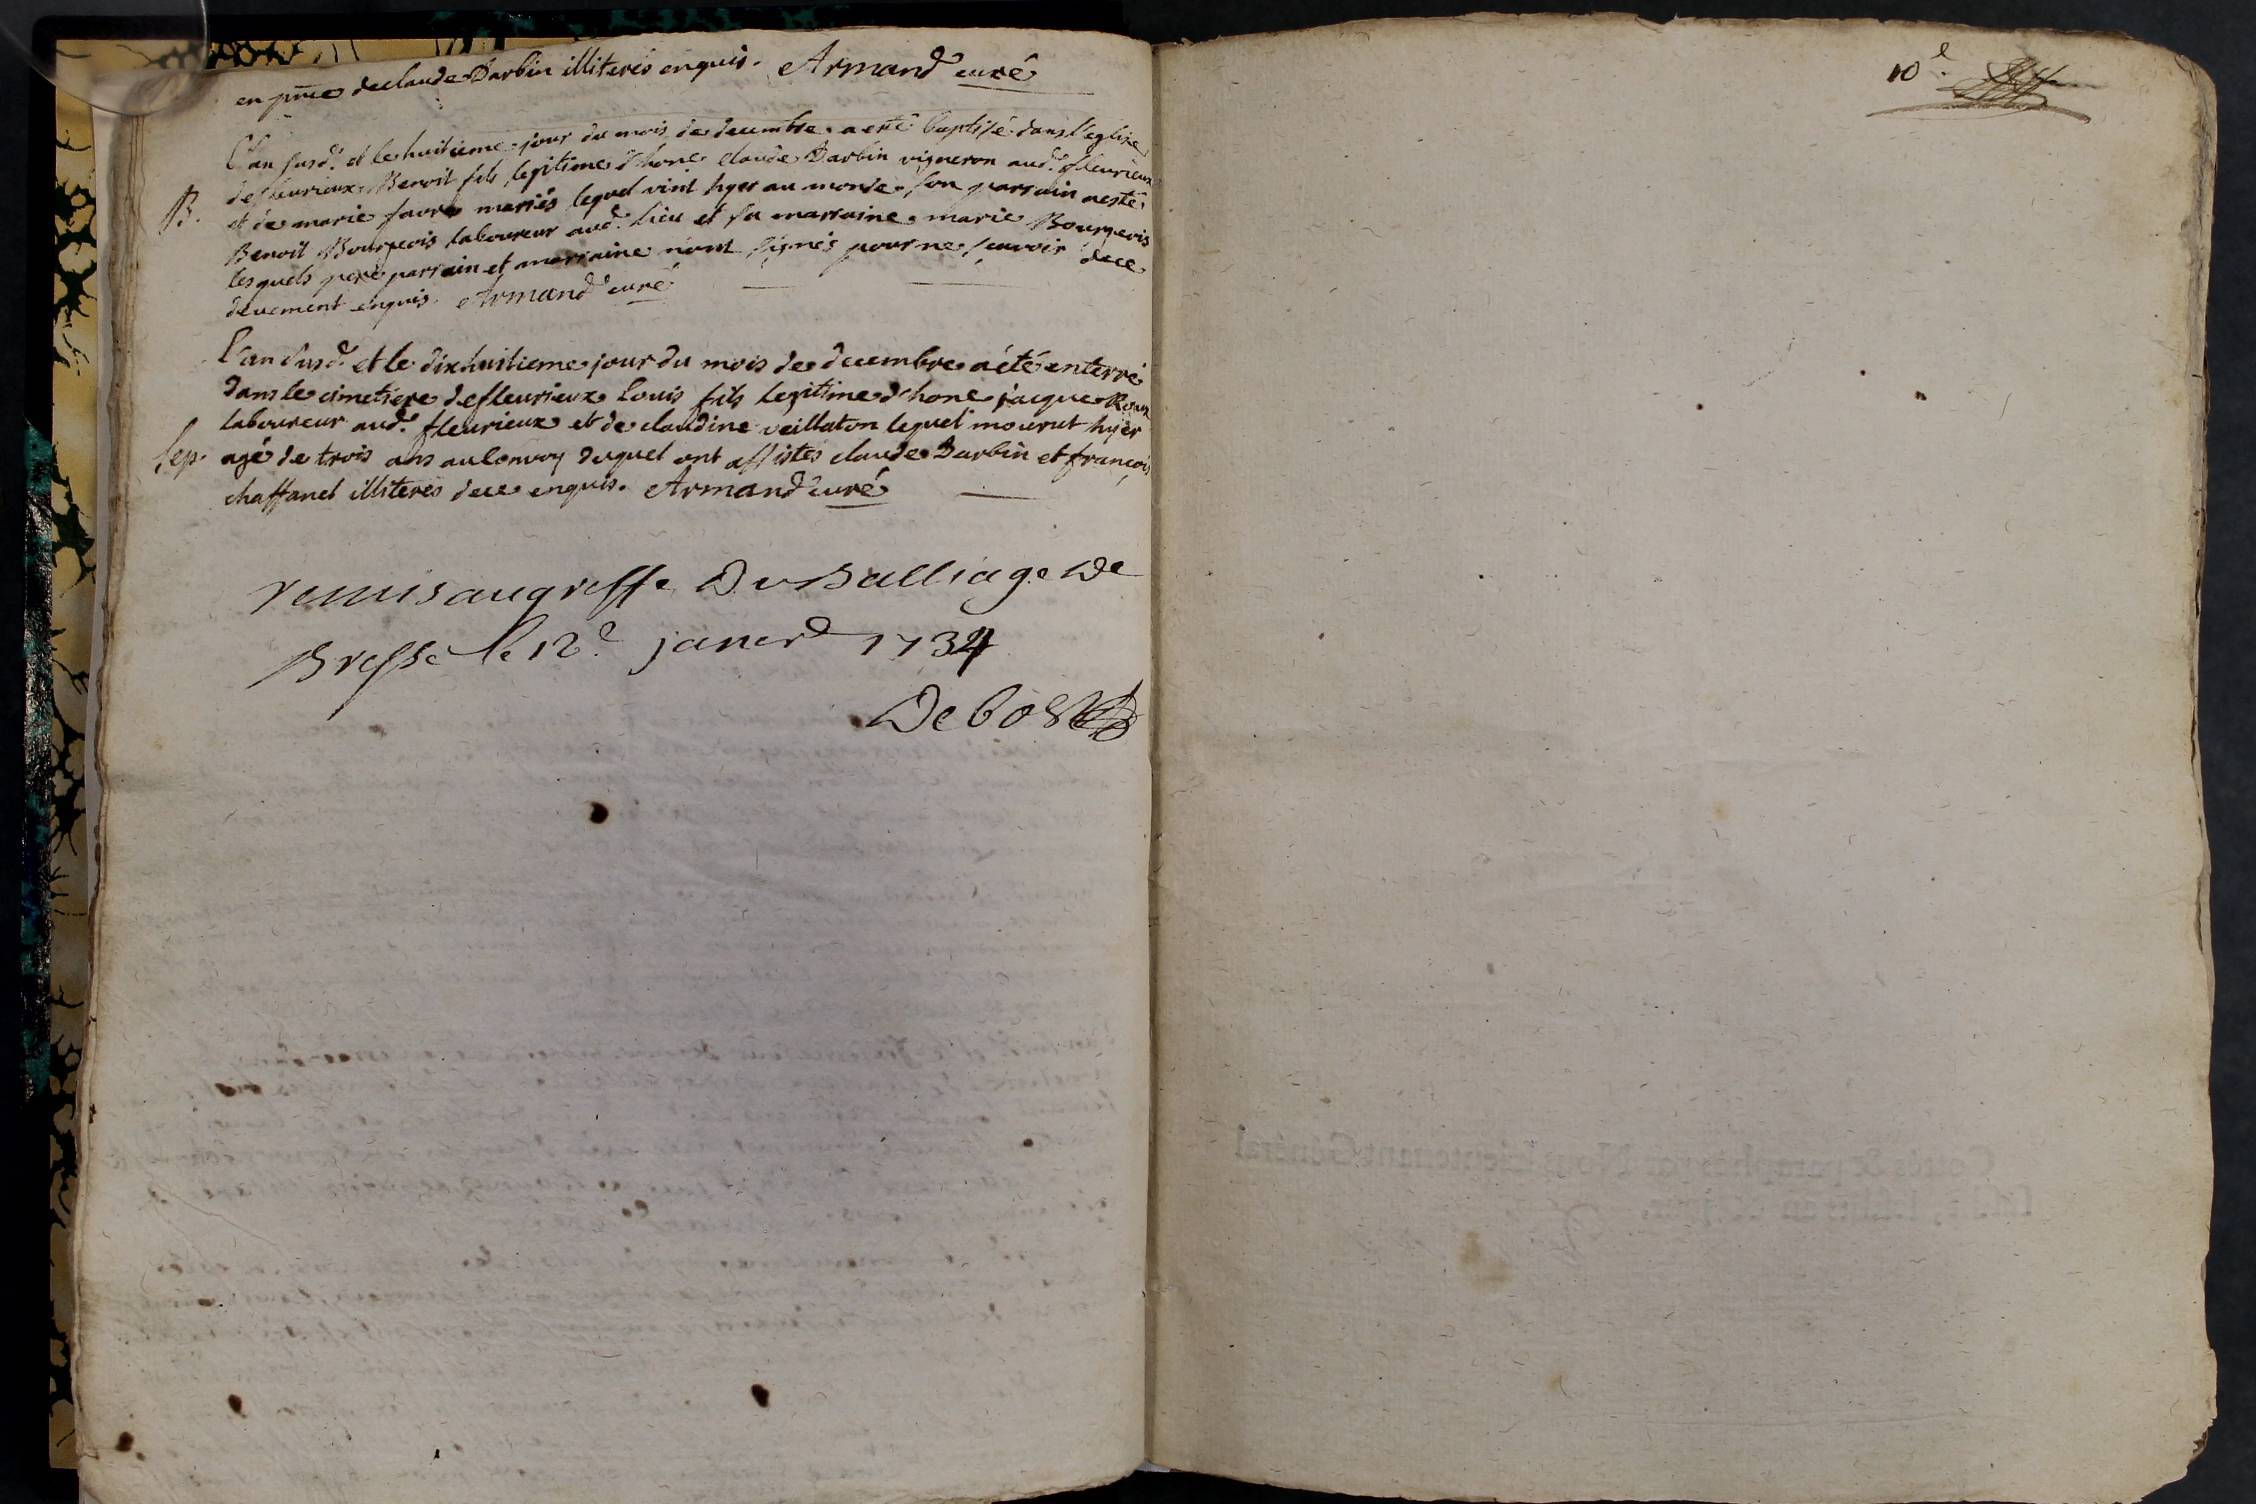 en pnce de claude Darbin illiterés enquis. Armand curé
L'an susd. et le huitieme jour du mois de decembre a esté baptisé dans l'eglise
de fleurieux Benoit fils legitime d'hone claude Darbin vigneron aud. fleurieux
B.
et de marie favre mariés lequel vint hyer au monde. son parrain a esté
Benoit Bourgeois laboureur aud. lieu et sa marraine marie Bourgeois
lesquels pere parrain et marraine n'ont signés pour ne scavoir de ce
deuement enquis. Armand curé
L'an susd. et le dixhuitieme jour du mois de decembre a été enterré
dans le cimetiere de fleurieux Louis fils legitime d'hone jacque Roux
laboureur aud. fleurieux et de claudine veillaton lequel mourut hyer
Sep.
agé de trois ans au convoy duquel ont assistés claude Darbin et françois
chaffanel illiterés de ce enquis. Armand curé
remis au greffe Du Balliage De
Bresse le 12e janer 1734
Debost
10e.
Cottés & paraphés par Nous Lieutenant Général